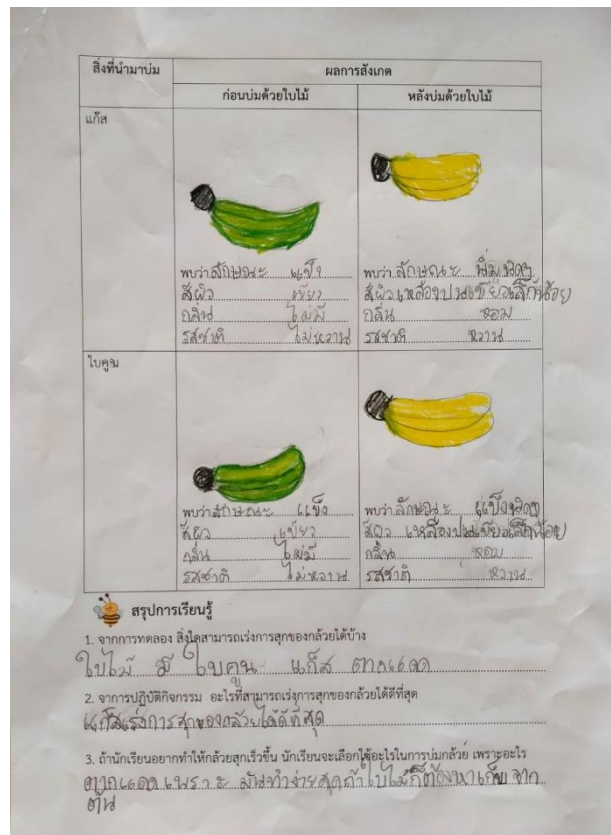 สิ่งที่นำมาบ่ม
ผลการสังเกต
ก่อนบ่มด้วยใบไม้
หลังบ่มด้วยใบไม้
แก๊ส
พบว่า ลักษณะ แข็ง
สีผิว เขียว
กลิ่น ไม่มี
รสชาติ ไม่หวาน
พบว่า ลักษณะ
สีผิว เหลืองปนเขียวเล็กน้อย
กลิ่น หอม
รสชาติ หวาน
ใบคูน
พบว่า ลักษณะ แข็ง
สีผิว เขียว
กลิ่น ไม่มี
รสชาติ ไม่หวาน
พบว่า ลักษณะ
สีผิว เหลืองปนเขียวเล็กน้อย
กลิ่น หอม
รสชาติ หวาน
สรุปการเรียนรู้
1. จากการทดลอง สิ่งใดสามารถเร่งการสุกของกล้วยได้บ้าง
ใบไม้ มี ใบคูน แก๊ส ตากแดด
2. จาการปฏิบัติกิจกรรม อะไรที่สามารถเร่งการสุกของกล้วยได้ดีที่สุด
แก๊สเร่งการสุกของกล้วยได้ดีที่สุด
3. ถ้านักเรียนอยากทำให้กล้วยสุกเร็วขึ้น นักเรียนจะเลือกใช้อะไรในการบ่มกล้วย เพราะอะไร
ตากแดด เพราะ มันทำง่ายสุดถ้าใบไม้ก็ต้องหาเก็บ จาก
ต้น